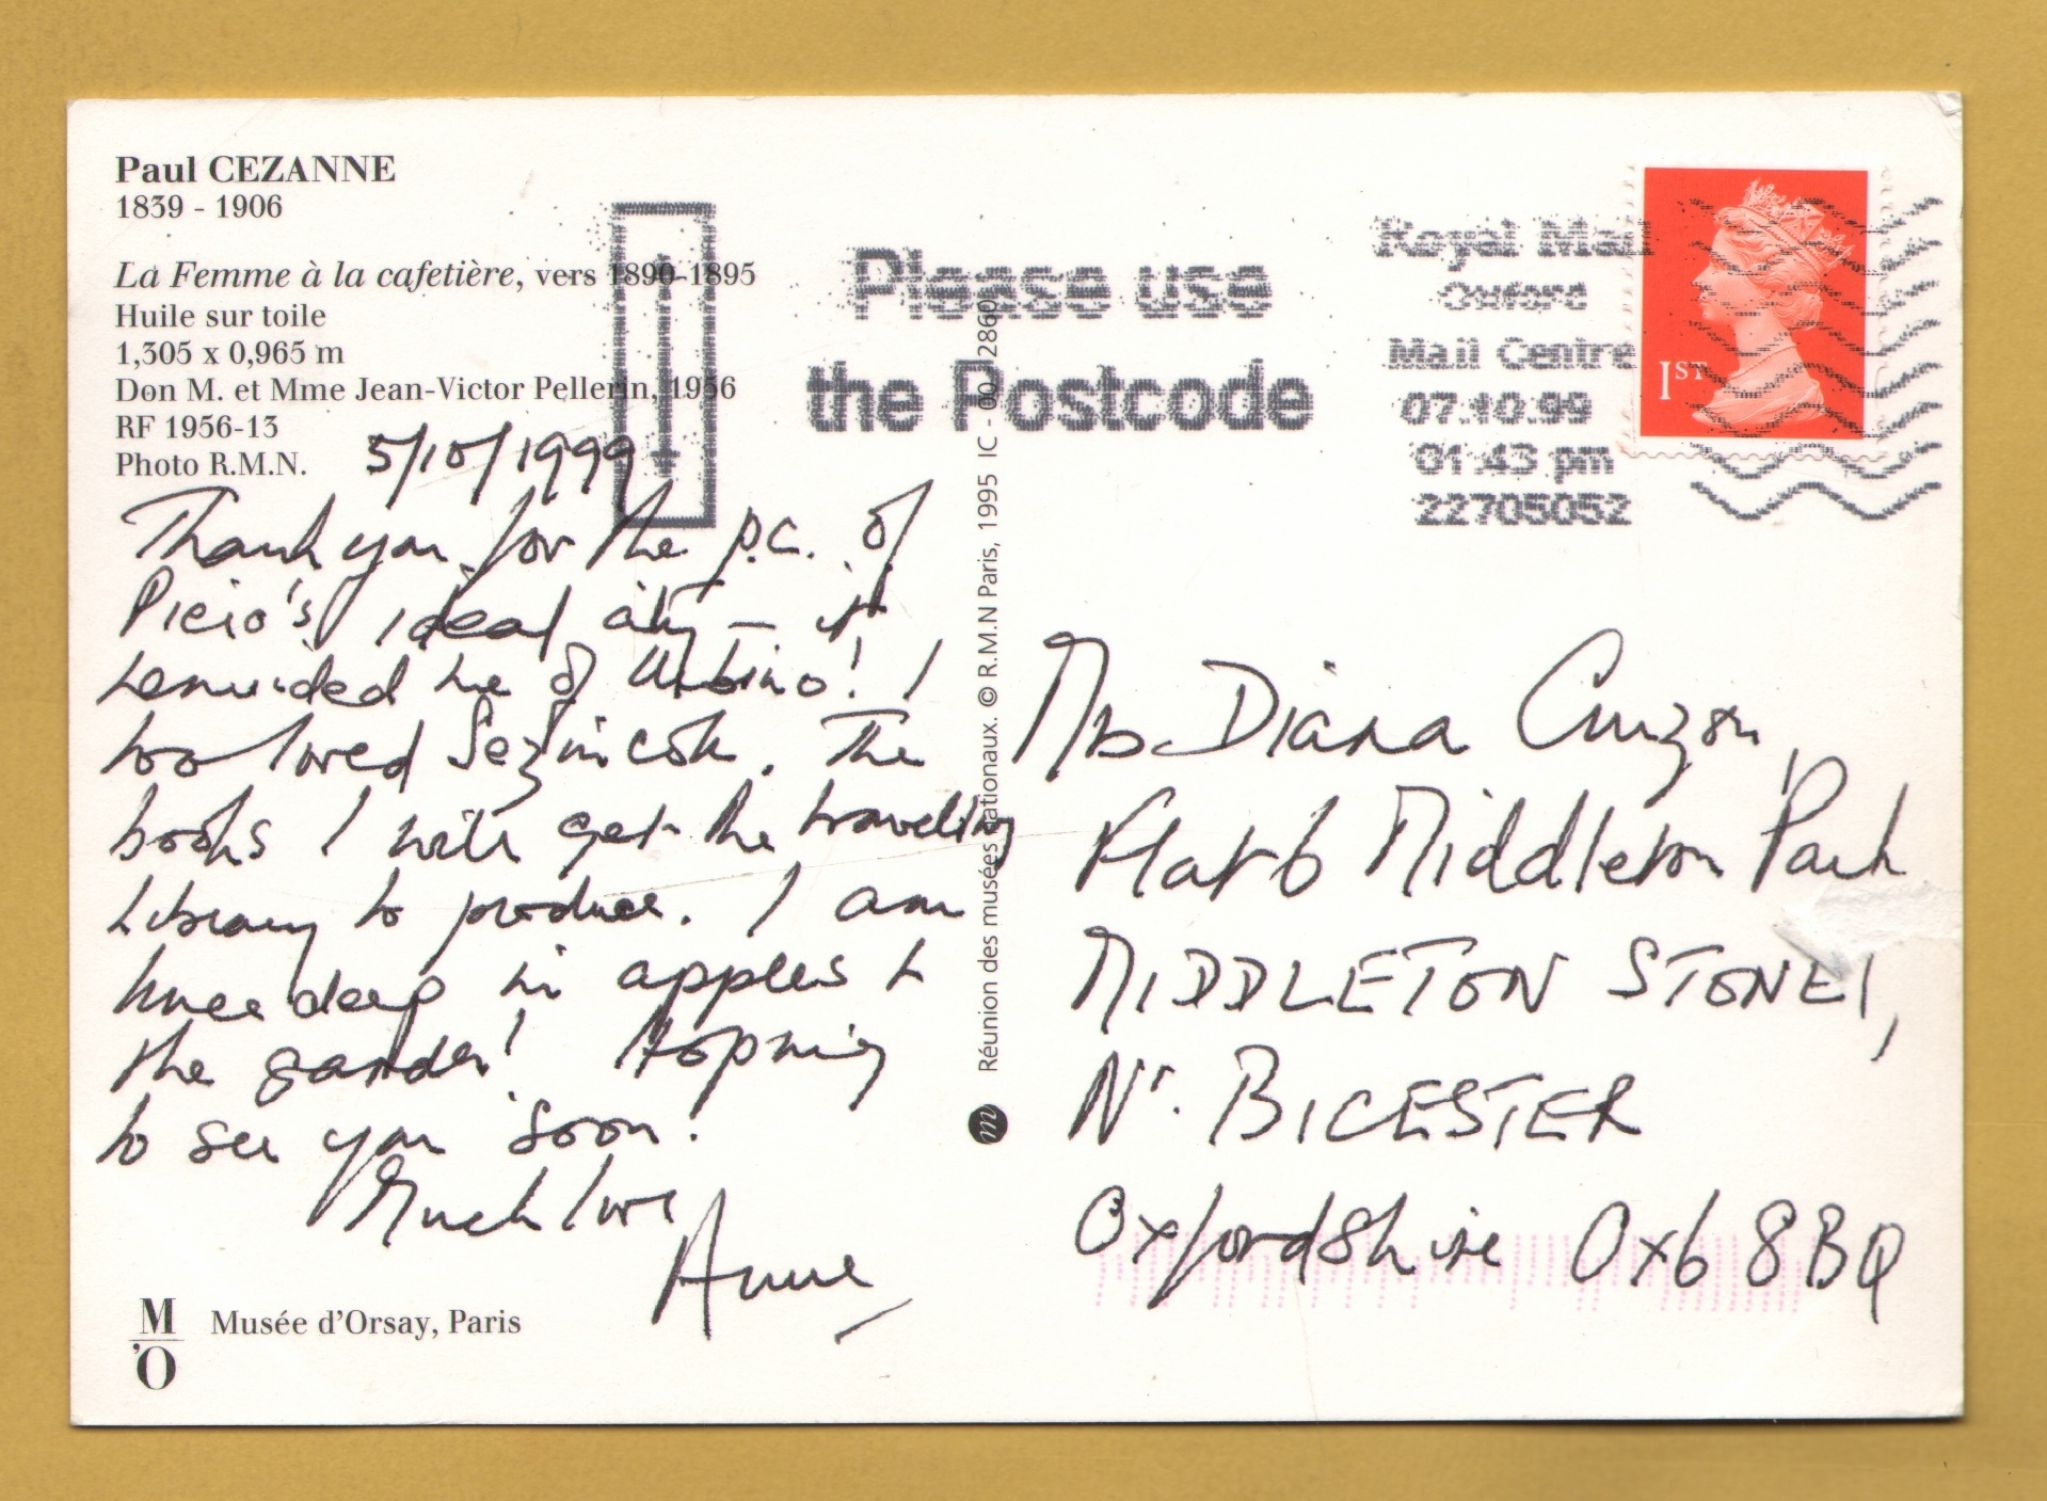 Paul CEZANNE
1839 - 1906
La Femme à la cafetière, vers 1890-1895
Huile sur toile
1,305 x 0,965 m
Don M. et Mme Jean-Victor Pellerin, 1956
RF 1956-13
Photo R.M.N.
5/10/1999
Thank you for the p.c. of
Piero's ideal city – it
reminded me of Urbino! I
too loved Sezincote. The
books I will get the travelling
library to produce. I am
knee deep in apples
the garden! Hoping
to see you soon.
Much love
Anne
M
'O
Musée d'Orsay, Paris
Réunion des musées nationaux. © R.M.N Paris, 1995 IC - 00 2860
m
Please use
the Postcode
Royal Mail
Oxford
Mail Centre
07.10.99
01:43 pm
22705052
1ST
Diana Curzon,
Flat 6 Middleton Park
MIDDLETON STONEY,
Nr. BICESTER
Oxfordshire OX6 8BQ